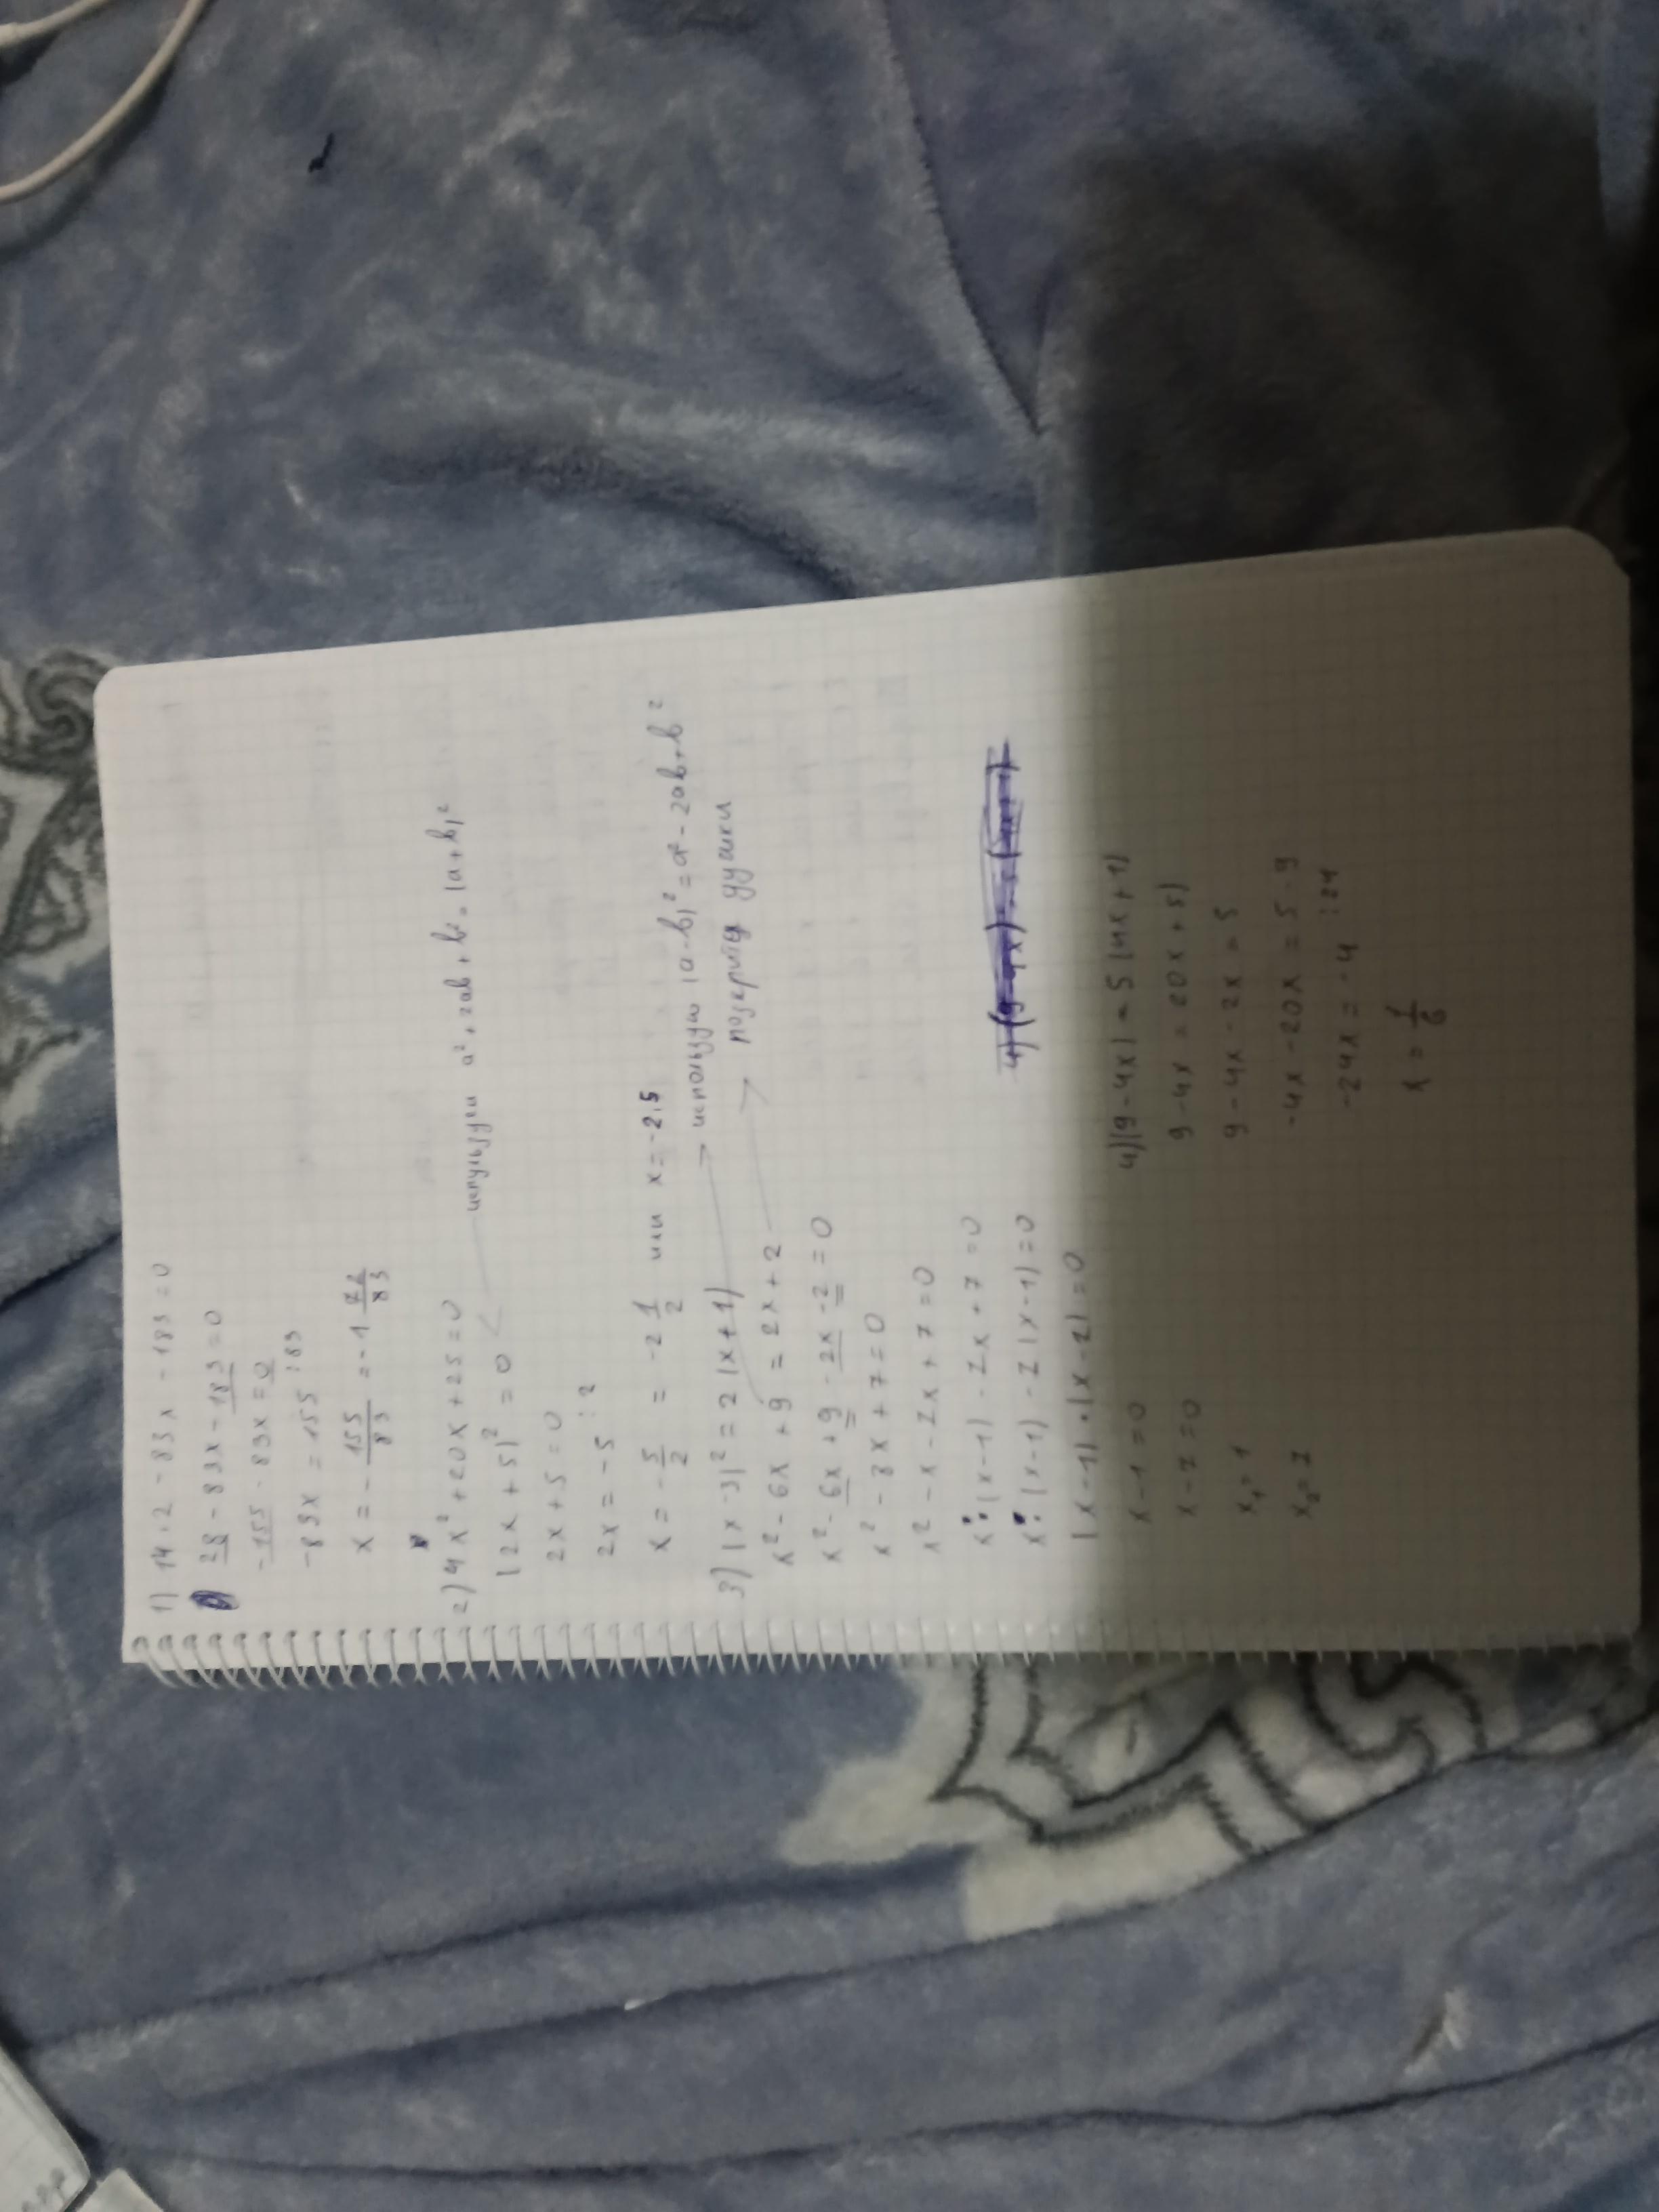 1) 14 · 2 - 83x - 183 = 0
28 - 83x - 183 = 0
-155 - 83x = 0
-83x = 155 :83
x = - 155/83 = -1 72/83
2) 4x² + 20x + 25 = 0
a² + 2ab + b² = (a+b)²
(2x + 5)² = 0
2x + 5 = 0
2x = -5 :2
x = - 5/2 = -2 1/2 или x = -2,5
3) (x - 3)² = 2(x + 1)
использую (a-b)² = a² - 2ab + b²
x² - 6x + 9 = 2x + 2
x² - 6x + 9 - 2x - 2 = 0
x² - 8x + 7 = 0
x² - x - 7x + 7 = 0
x · (x-1) - 7x + 7 = 0
x · (x-1) - 7(x-1) = 0
(x-1) · (x-7) = 0
x - 1 = 0
x - 7 = 0
x₁ = 1
x₂ = 7
4) (9 - 4x) = 5(4x + 1)
9 - 4x = 20x + 5)
9 - 4x - 2x = 5
-4x - 20x = 5 - 9
-24x = -4 :24
x = 1/6